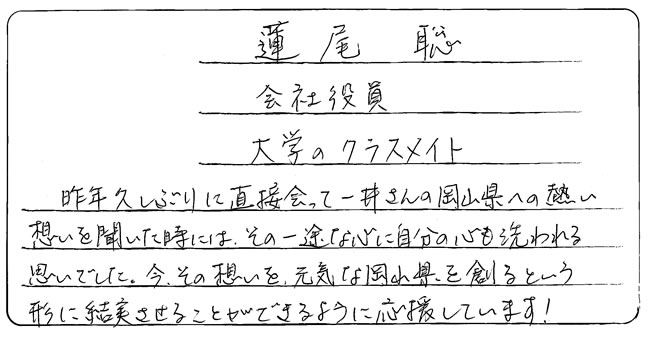 蓮尾 聡
会社役員
大学のクラスメイト
昨年久しぶりに直接会って一井さんの岡山県への熱い
想いを聞いた時には、その一途な心に自分の心も洗われる
思いでした。今、その想いを、元気な岡山県を創るという
形に結実させることができるように応援しています!